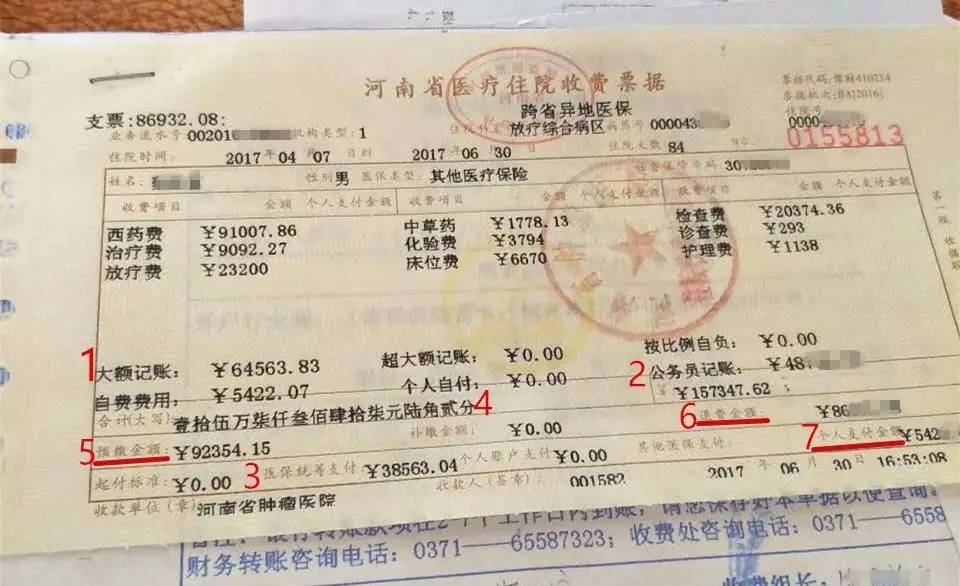 河南省医疗住院收费票据
票据代码:豫财410214
跨省异地医保
支票:86932.08:
业务流水号 00201 机构类型:1
放疗综合病区 病男号 000043
0000
住院时间: 2017年 04月 07日到 2017年 06月 30日 住院天数 84 NO. 0155813
姓名: 性别男 医保类型: 其他医疗保险 301
收费项目 金额 个人支付金额 收费项目 金额 个人支付金额 收费项目 金额 个人支付金额
西药费 ¥91007.86 中草药 ¥1778.13 检查费 ¥20374.36
治疗费 ¥9092.27 化验费 ¥3794 诊查费 ¥293
放疗费 ¥23200 床位费 ¥6670 护理费 ¥1138
1 大额记账: ¥64563.83 超大额记账: ¥0.00 按比例自负: ¥0.00
自费费用: ¥5422.07 个人自付: ¥0.00 2 公务员记账: ¥48
合计(大写): 壹拾伍万柒仟叁佰肆拾柒元陆角贰分 4 ¥157347.62
5 预缴金额: ¥92354.15 补缴金额: ¥0.00 6 退费金额: ¥86
起付标准: ¥0.00 3 医保统筹支付: ¥38563.04 个人账户支付 ¥0.00 其他医保支付: 7 个人支付金额: ¥542
收款单位(章) 河南省肿瘤医院 收款人(签章): 001582 2017年 06月 30日 16:53:08
财务转账咨询电话:0371—65587323;收费处咨询电话:0371—655